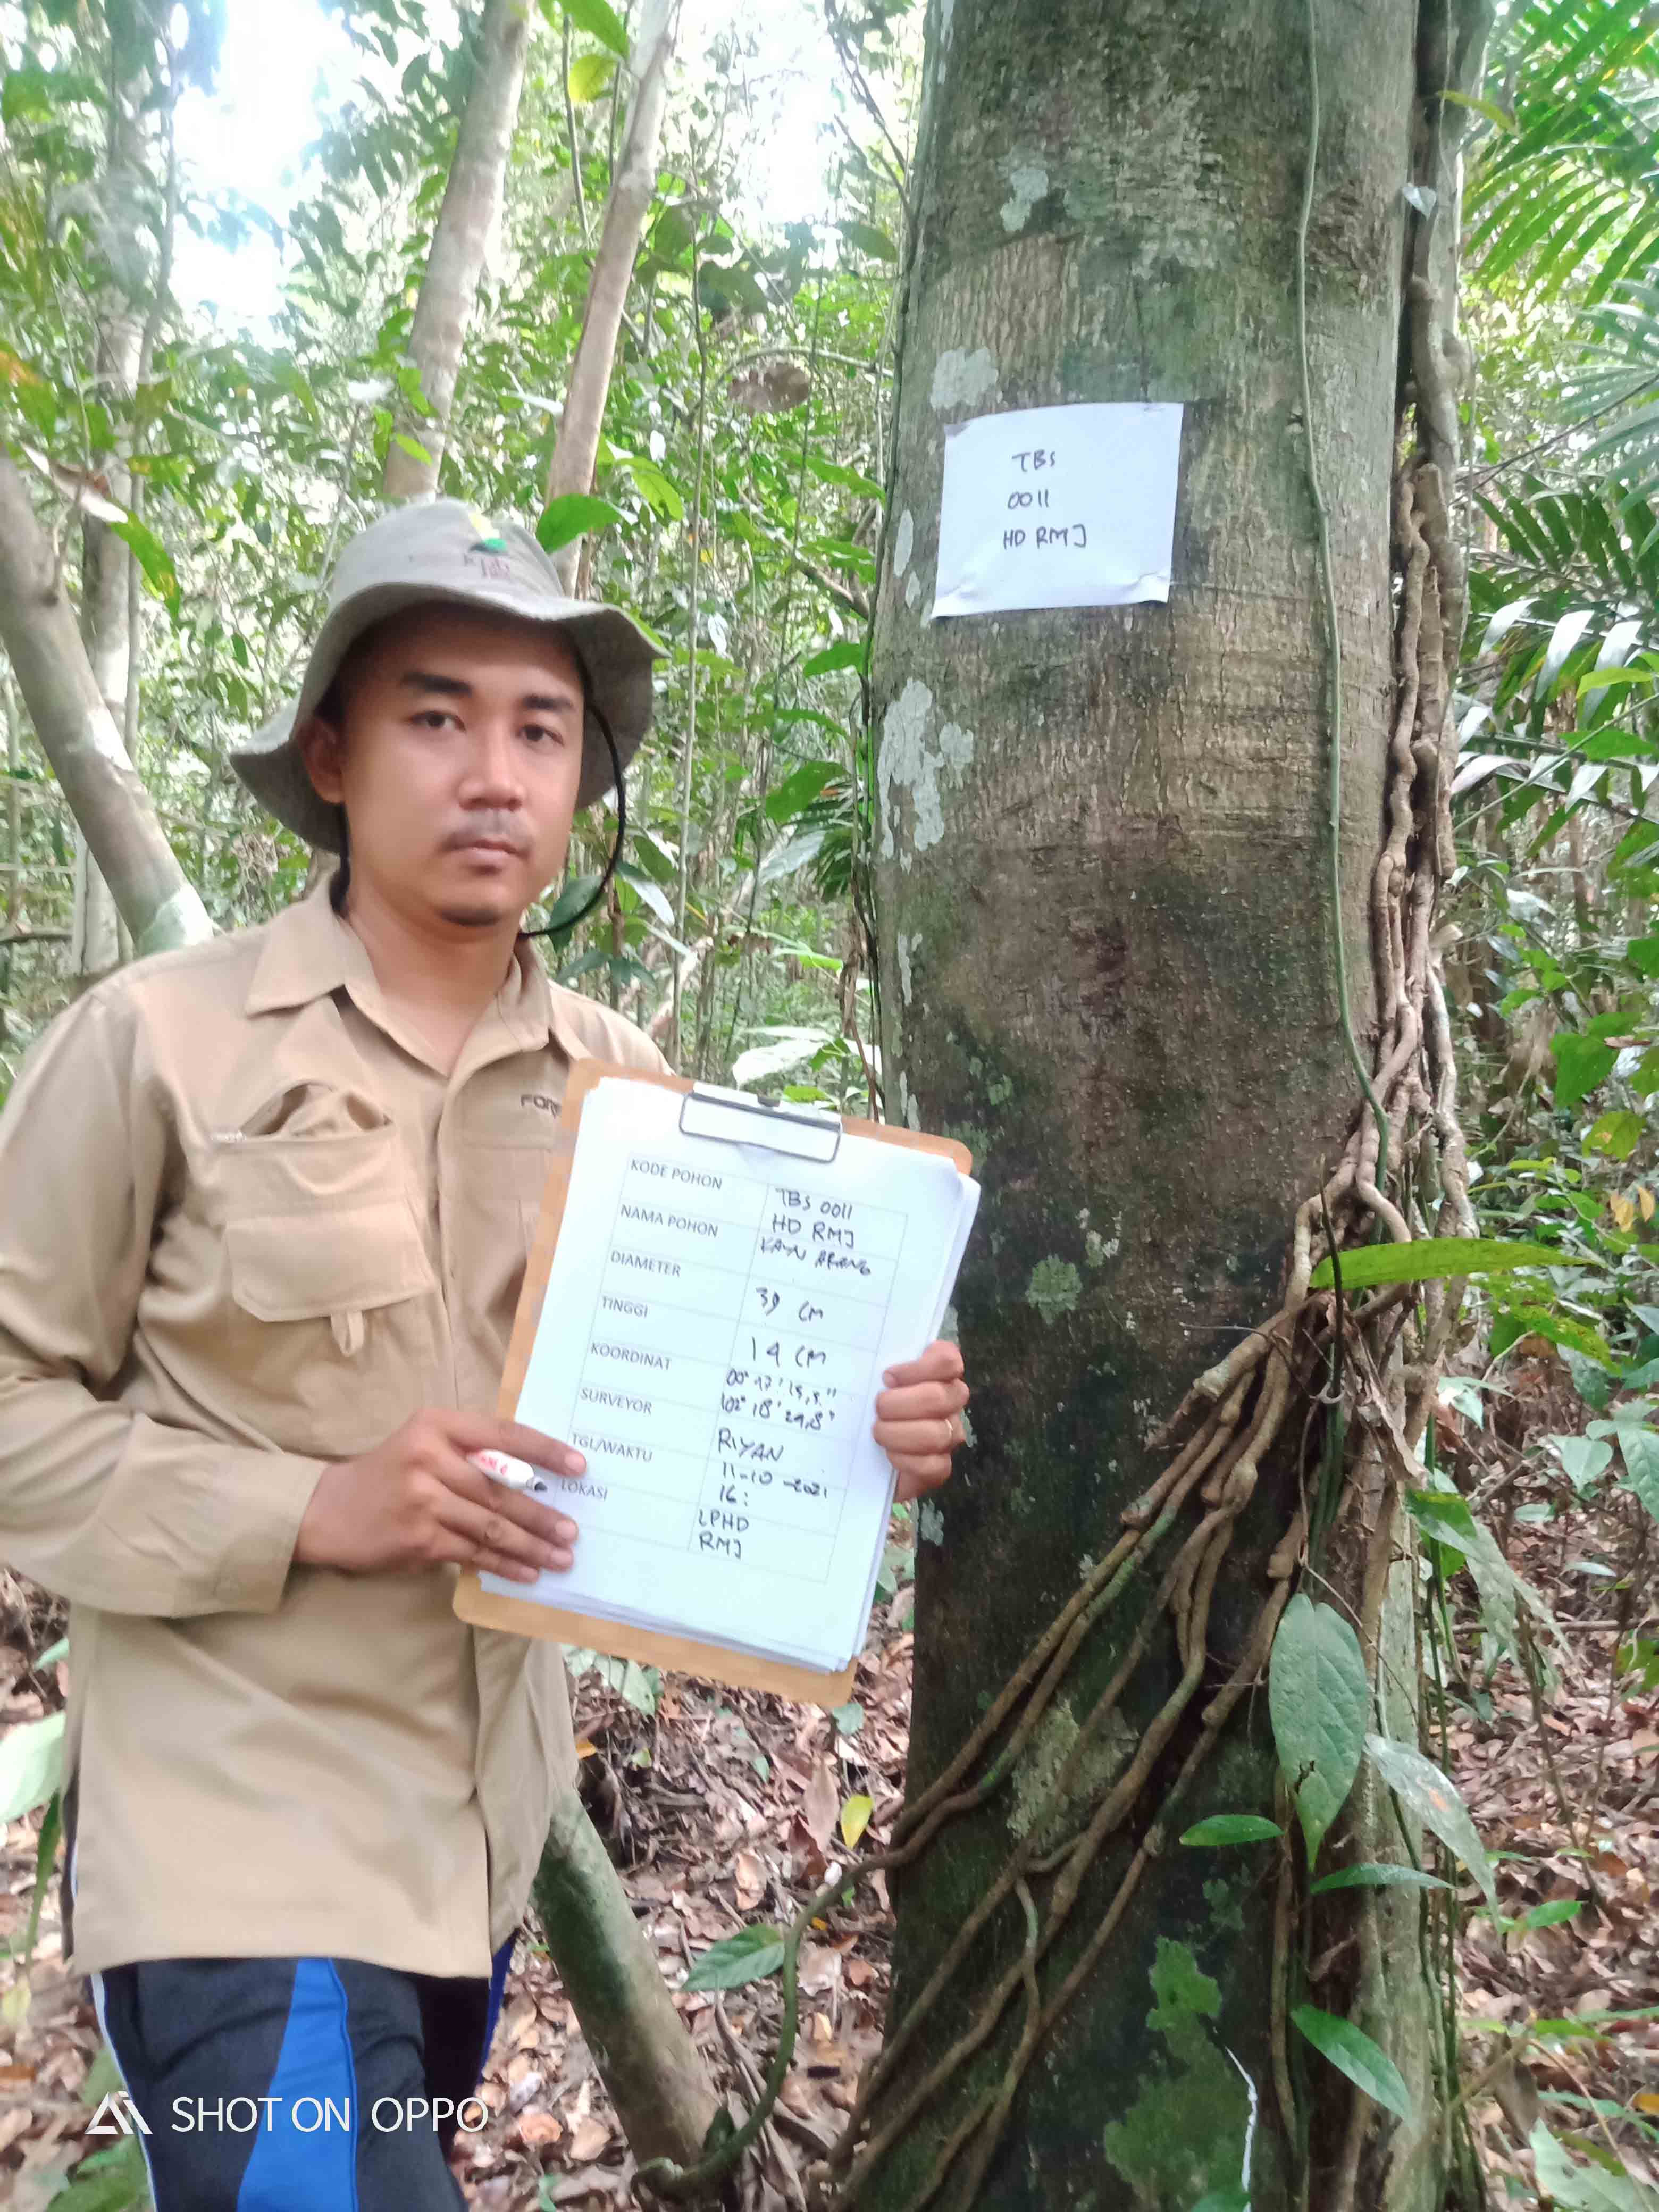 TBS
0011
HD RMJ
KODE POHON
TBS 0011
HD RMJ
NAMA POHON
KAYU ARANG
DIAMETER
39 CM
TINGGI
14 CM
KOORDINAT
102° 18' 29,8"
SURVEYOR
RIYAN
TGL/WAKTU
11-10-2021
16:
LOKASI
LPHD
RMJ
SHOT ON OPPO